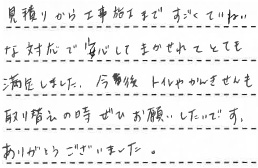 見積りから工事施工まですごくていねい
な対応で安心してまかせれてとても
満足しました。今後トイレやかんきせんも
取り替えの時ぜひお願いしたいです。
ありがとうございました。